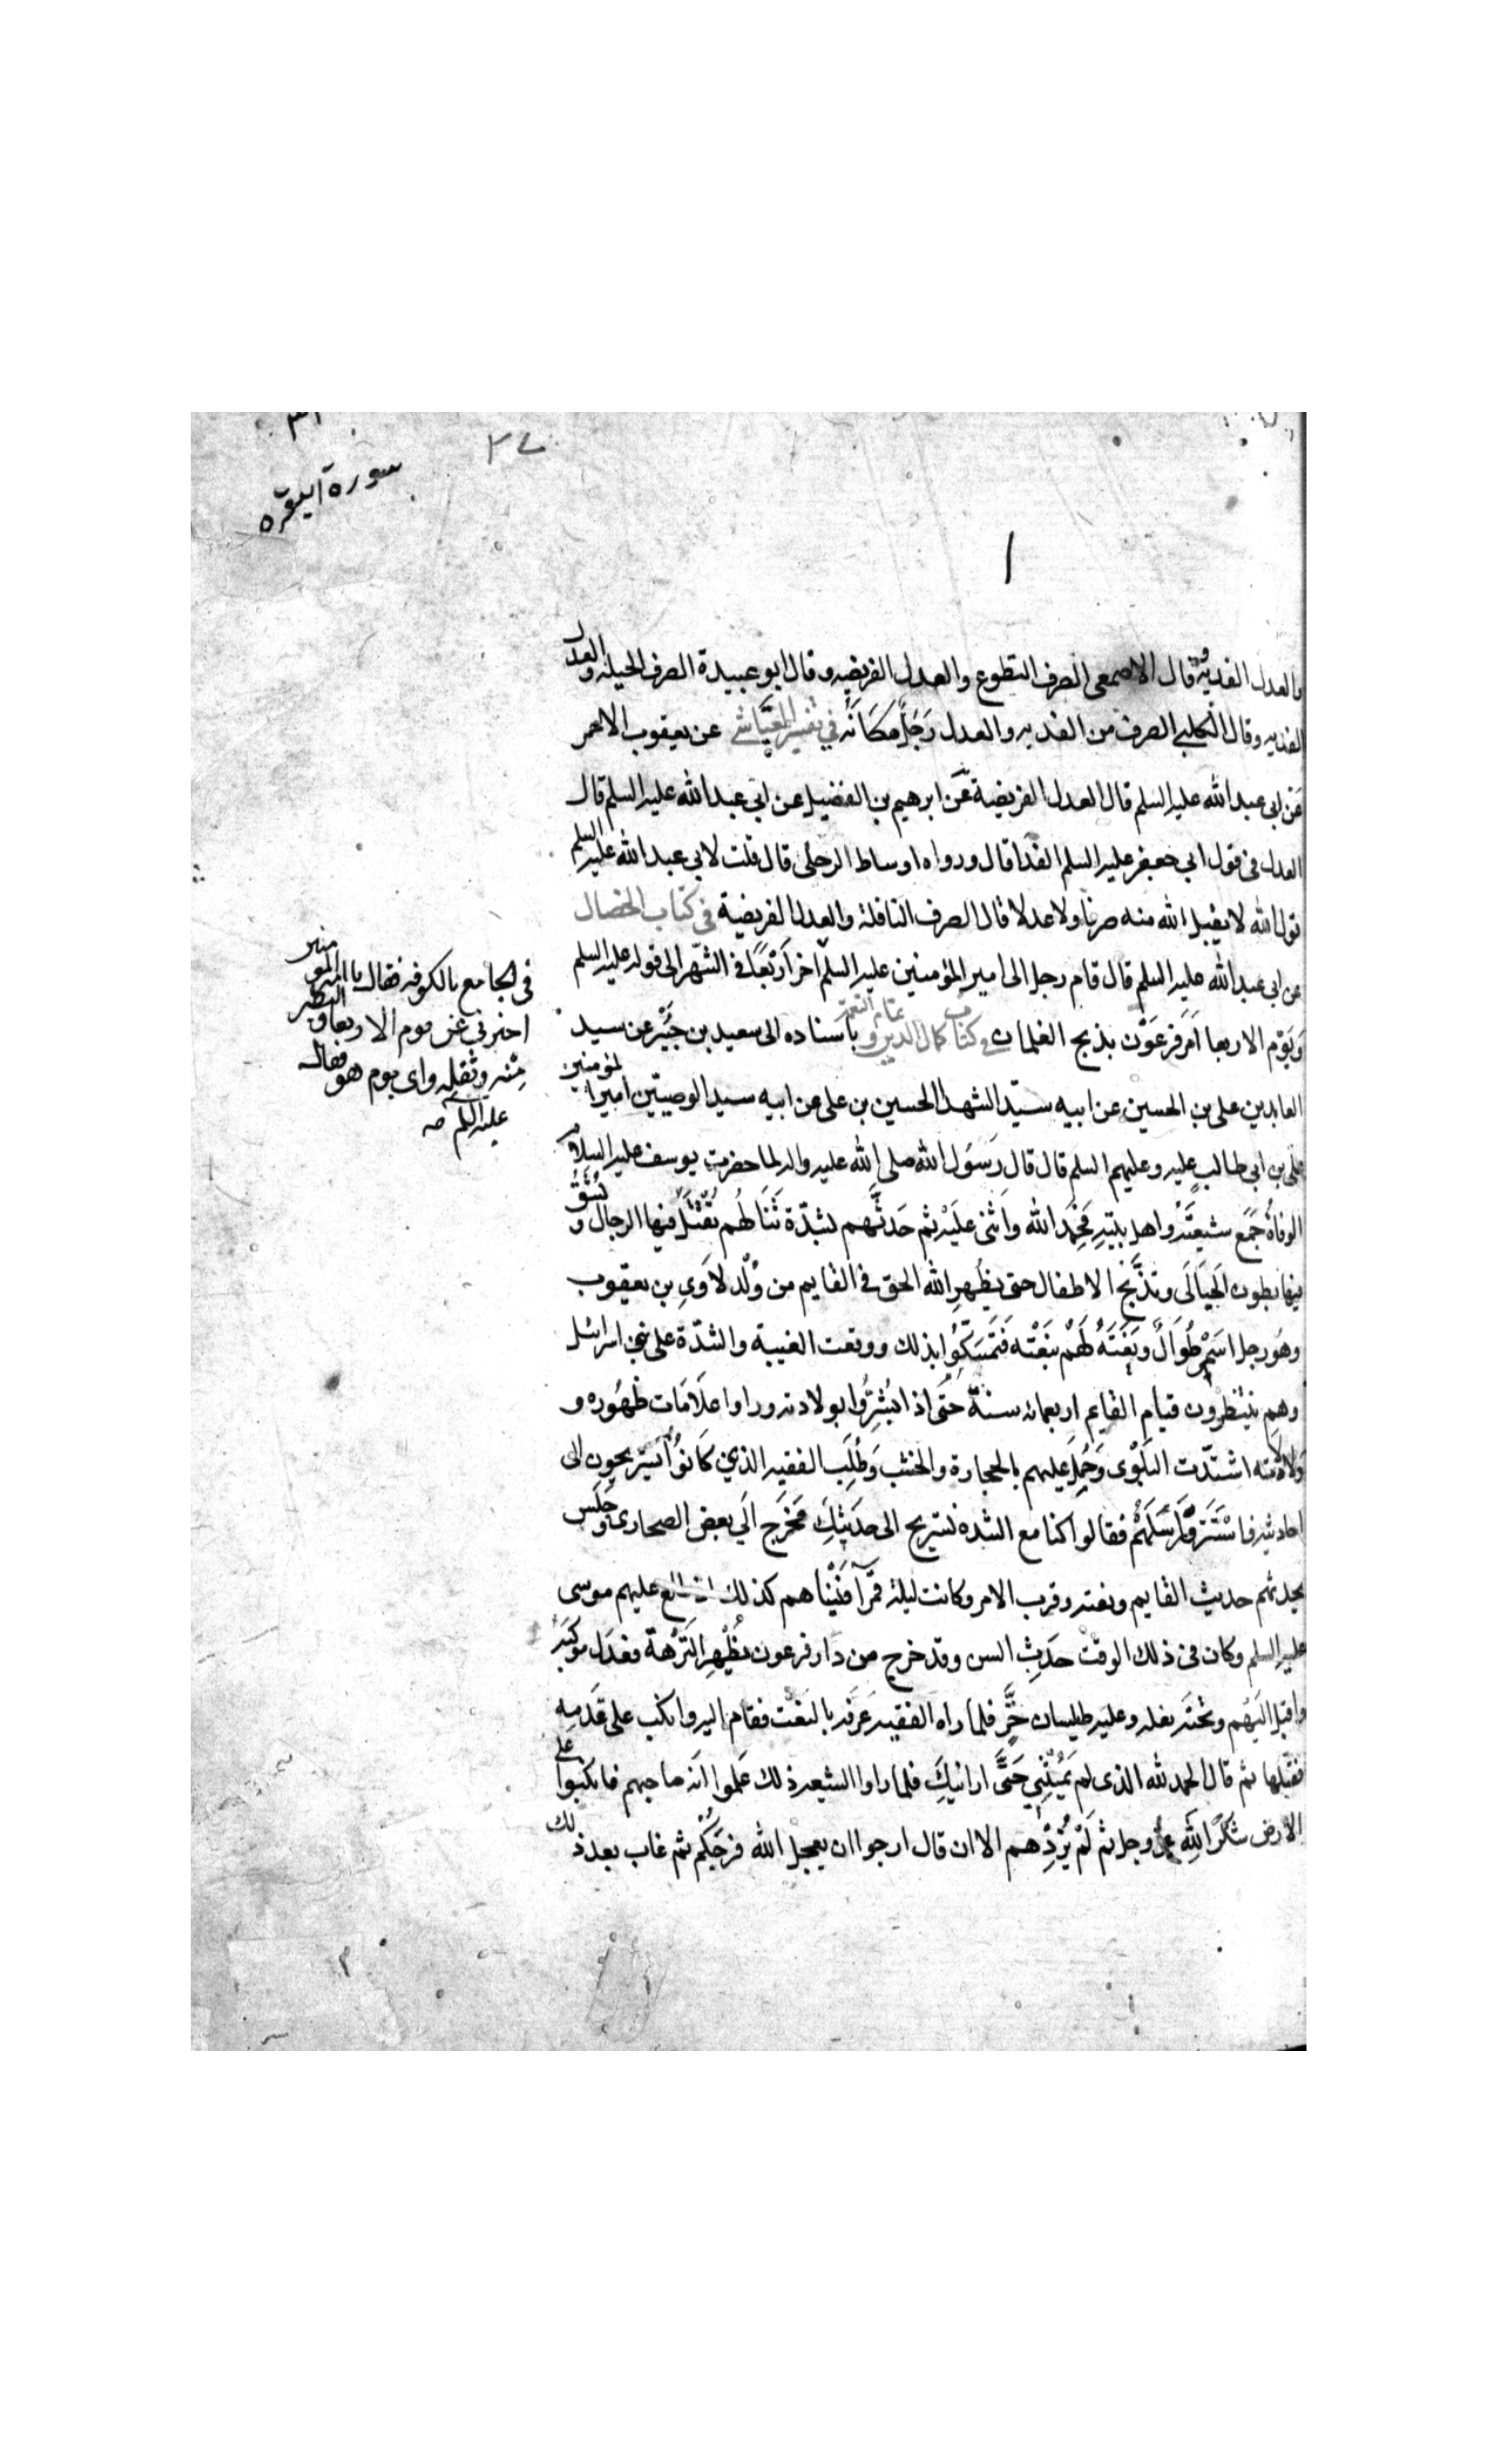 سورة البقره
٢٧
١
والعدل الفديه قال الاصمعى الصرف التطوع والعدل الفريضه وقال ابو عبيدة الصرف الحيله والعدل
الفديه وقال الكلبى الصرف من الفديه والعدل رجل مكانه في تفسير العياشي عن يعقوب الاحمر
عن ابى عبد الله عليه السلم قال العدل الفريضة عن ابرهيم بن الفضيل عن ابى عبد الله عليه السلم قال
العدل فى قول ابى جعفر عليه السلم الفدا قال ورواه اوساط الرحلى قال قلت لابى عبد الله عليه السلم
قول الله لا يقبل الله منه صرفا ولا عدلا قال الصرف النافلة والعدل الفريضية فى كتاب الخصال
عن ابى عبد الله عليه السلم قال قام رجل الى امير المؤمنين عليه السلم اخر اربعا فى الشهر الى قوله عليه السلم
ويوم الاربعا امر فرعون بذبح الغلمان في كتاب كمال الدين وتمام النعمة باسناده الى سعيد بن جبير عن سيد
العابدين على بن الحسين عن ابيه سيد الشهدا الحسين بن على عن ابيه سيد الوصيين امير المؤمنين
على بن ابى طالب عليه وعليهم السلم قال قال رسول الله صلى الله عليه واله لما حضرت يوسف عليه السلام
الوفاة جمع شيعته واهل بيته فحمد الله واثنى عليه ثم حدثهم بشدة تنالهم تقتل فيها الرجال وتشق
فيها بطون الحبالى وتذبح الاطفال حتى يظهر الله الحق فى القايم من ولد لاوى بن يعقوب
وهو رجل اسمر طوال ونعته لهم بنعته فتمسكوا بذلك ووقعت الغيبة والشدة على بنى اسرائيل
وهم ينتظرون قيام القايم اربعمائه سنة حتى اذا بشروا بولادته وراوا علامات ظهوره و
ولادته اشتدت البلوى وحمل عليهم بالحجارة والخشب وطلب الفقيه الذي كانوا يستريحون الى
احاديثه فاستتر وراسلهم فقالوا كنا مع الشده نستريح الى حديثك فخرج الى بعض الصحارى وجلس
يحدثهم حديث القايم ونعته وقرب الامر وكانت ليلة قمرآ فبينا هم كذلك اذ طلع عليهم موسى
عليه السلم وكان فى ذلك الوقت حديث السن وقد خرج من دار فرعون يظهر النزهة فعدل موكبه
واقبل اليهم وتحته بغله وعليه طيلسان خز فلما راه الفقيه عرفه بالنعت فقام اليه وانكب على قدميه
فقبلها ثم قال الحمد لله الذى لم يمتنى حتى ارانيك فلما راوا الشيعه ذلك علموا انه صاحبهم فانكبوا على
الارض شكرا لله عز وجل ثم لم يزدهم الا ان قال ارجوا ان يعجل الله فرجكم ثم غاب بعد ذلك
فى الجامع بالكوفه فقال يا امير المؤمنين
اخبرنى عن يوم الاربعا و التطير
منه وثقله واى يوم هو فقال
عليه السلم صه